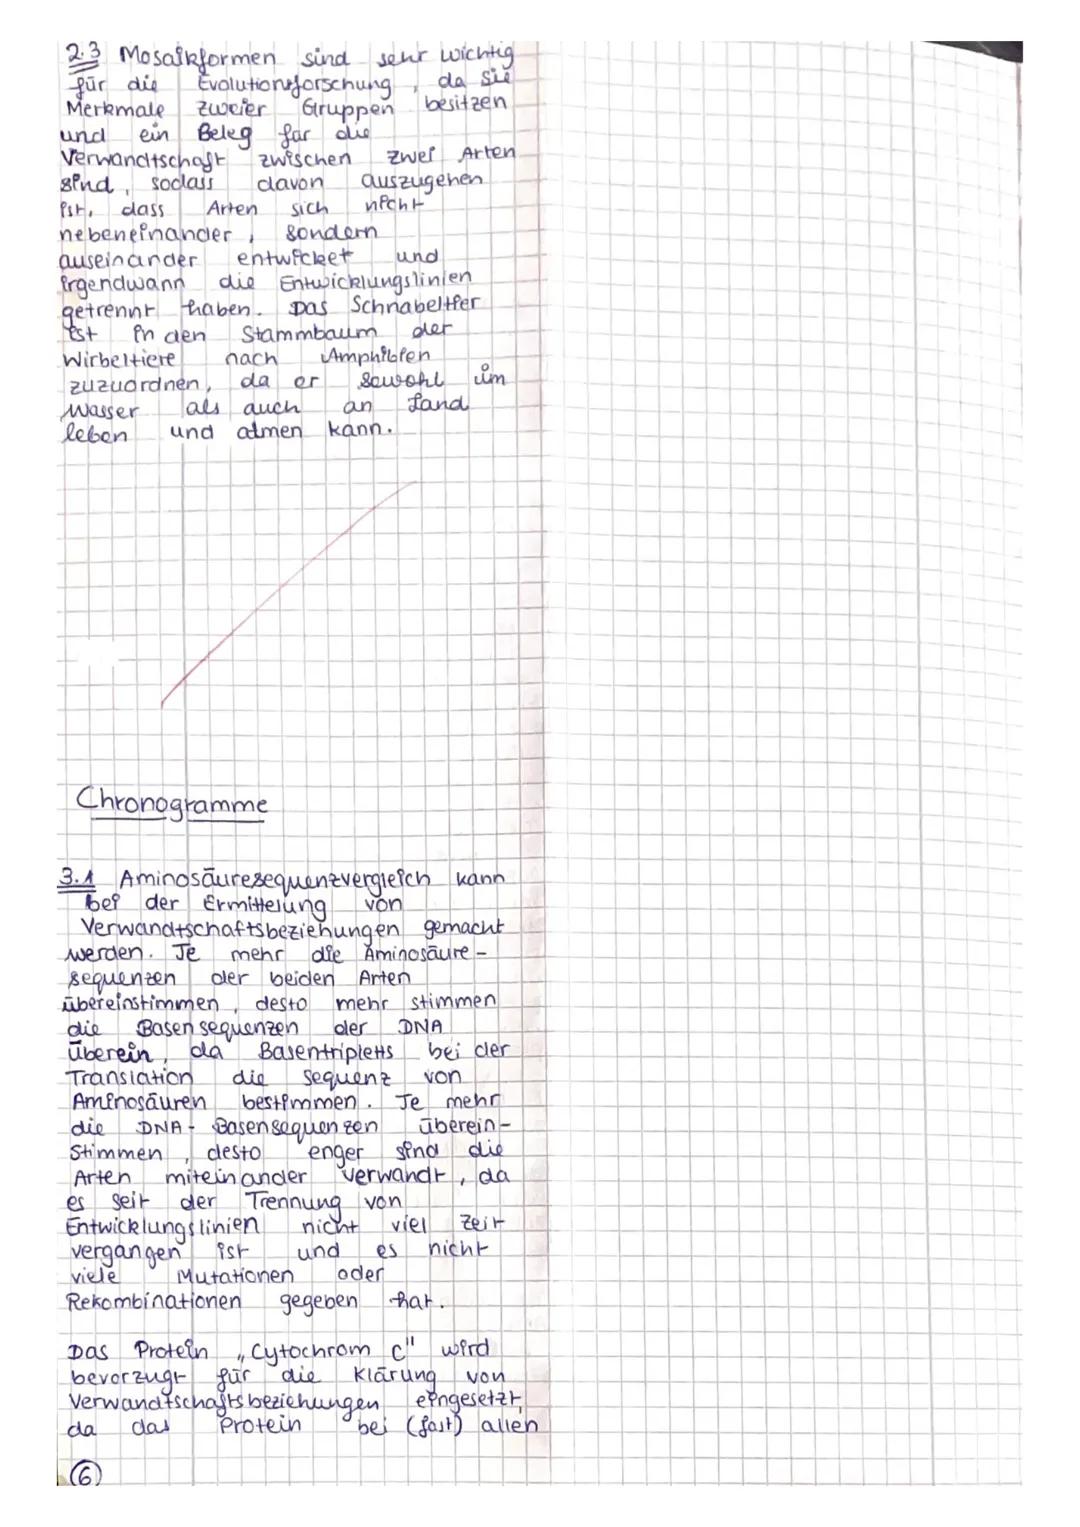 2.3 Mosaikformen sind sehr wichtig
für die Evolutionsforschung, da sie
Merkmale zweier Gruppen besitzen
und ein Beleg für die
Verwandtschaft zwischen zwei Arten
sind, sodass davon auszugehen
ist, dass Arten sich nicht
nebeneinander, sondern
auseinander entwickelt und
irgendwann die Entwicklungslinien
getrennt haben. Das Schnabeltier
ist in den Stammbaum der
Wirbeltiere nach Amphibien
zuzuordnen, da er sowohl im
Wasser als auch an Land
leben und atmen kann.
Chronogramme
3.1 Aminosäuresequenzvergleich kann
bei der Ermittelung von
Verwandtschaftsbeziehungen gemacht
werden. Je mehr die Aminosäure-
sequenzen der beiden Arten
übereinstimmen, desto mehr stimmen
die Basensequenzen der DNA
überein, da Basentripletts bei der
Translation die Sequenz von
Aminosäuren bestimmen. Je mehr
die DNA-Basensequenzen überein-
stimmen, desto enger sind die
Arten miteinander verwandt, da
es seit der Trennung von
Entwicklungslinien nicht viel Zeit
vergangen ist und es nicht
viele Mutationen oder
Rekombinationen gegeben hat.
Das Protein „Cytochrom c" wird
bevorzugt für die Klärung von
Verwandtschaftsbeziehungen eingesetzt,
da das Protein bei (fast) allen
6